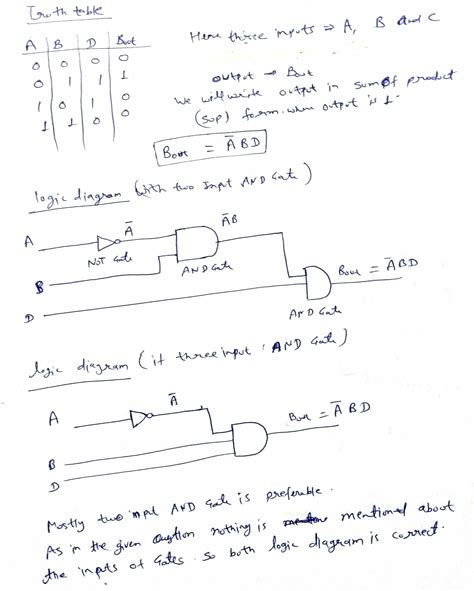 Truth table
A B D Bout
0 0 0 0
0 1 1 1
1 0 1 0
1 1 0 0
Here three inputs ⇒ A, B and C
output → Bout
We will write output in sum of product
(sop) form. when output is 1.
Bout = A̅BD
logic diagram (with two Input AND Gate)
A
A̅
NOT Gate
A̅B
AND Gate
B
Bout = A̅BD
D
AND Gate
logic diagram (if three input AND Gate)
A
A̅
Bout = A̅BD
B
D
Mostly two input AND Gate is preferable.
As in the given Question nothing is mentioned about
the inputs of Gates. so both logic diagram is correct.